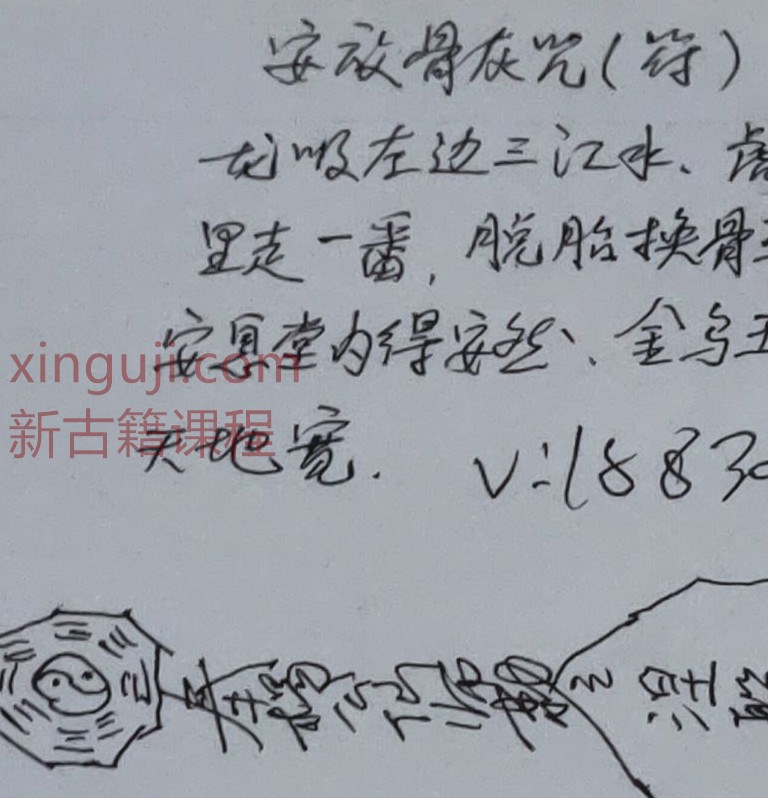 安放骨灰咒(符)
龙吸左边三江水、虎
里走一番,脱胎换骨
安息堂内得安然、金乌玉
天地宽.
V:18830
xinguji.com
新古籍课程